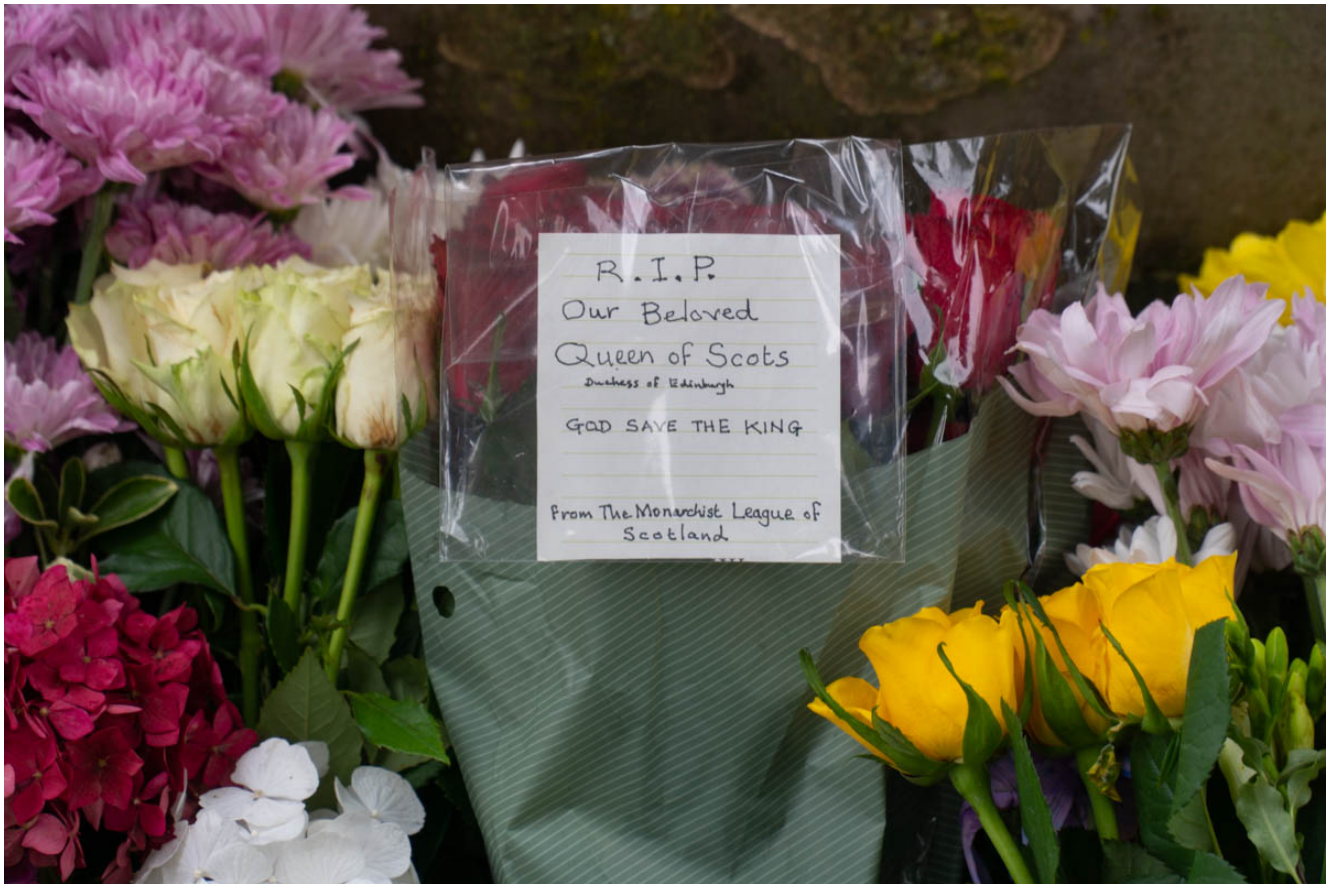 R.I.P.
Our Beloved
Queen of Scots
Duchess of Edinburgh
GOD SAVE THE KING
From The Monarchist League of
Scotland